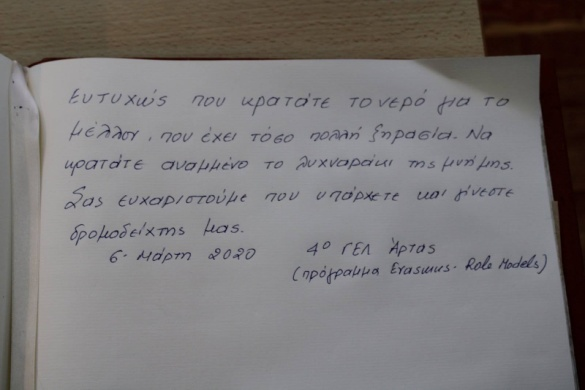 Ευτυχώς που κρατάτε το νερό για το
μέλλον, που έχει τόσο πολλή ξηρασία. Να
κρατάτε αναμμένο το λυχναράκι της μνήμης.
Σας ευχαριστούμε που υπάρχετε και γίνεστε
δρομοδείχτης μας.
6 Μάρτη 2020 4ο ΓΕΛ Άρτας
(πρόγραμμα Erasmus - Role Models)